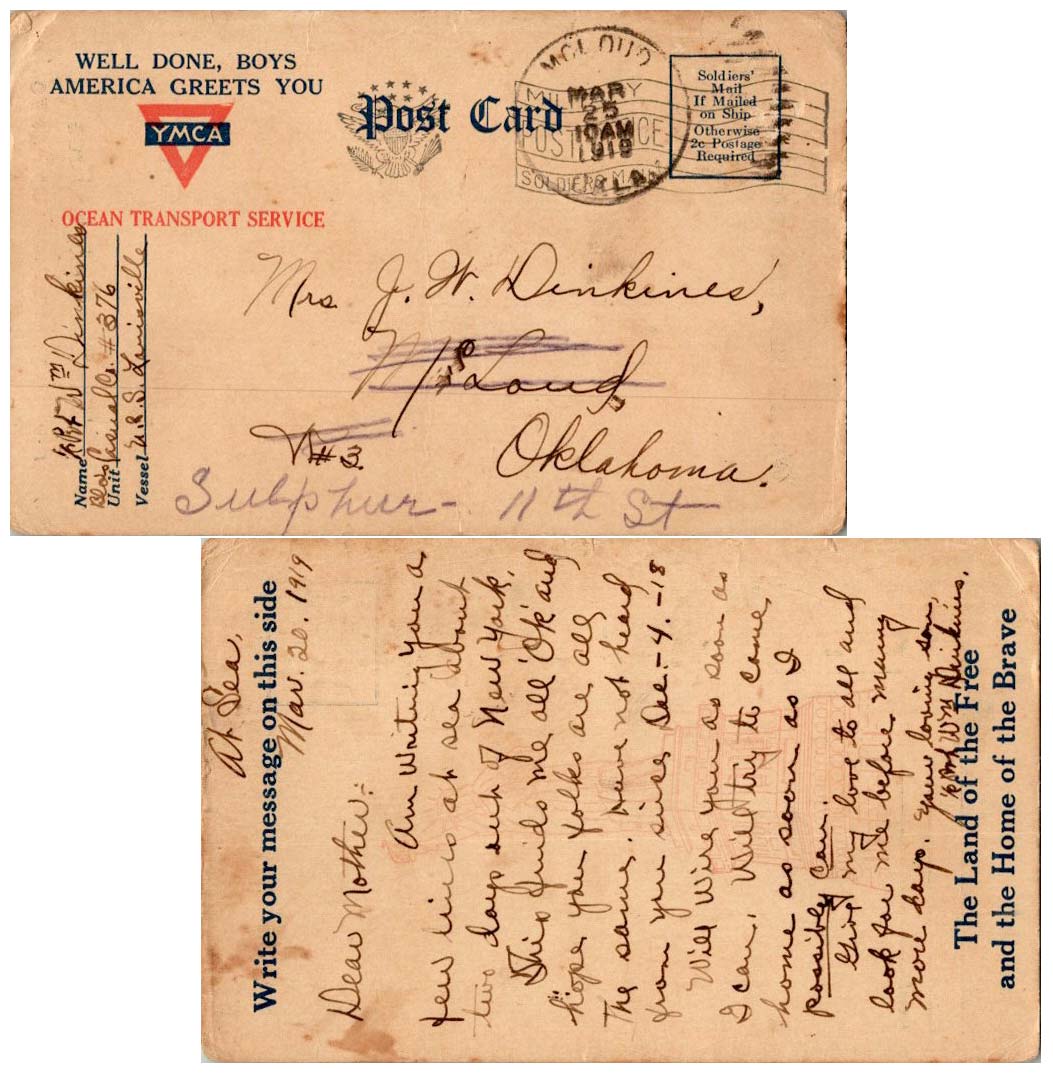 WELL DONE, BOYS
AMERICA GREETS YOU
YMCA
OCEAN TRANSPORT SERVICE
Post Card
MCLOUD
MAR
25
10AM
1919
OKLA.
MILITARY
POST OFFICE
SOLDIERS MAIL
Soldiers'
Mail
If Mailed
on Ship
Otherwise
2c Postage
Required
Name Pvt Wm Dinkines
Unit Casual Co. #376
Vessel U.S.S. Louisville
Mrs. J. W. Dinkines,
McLoud,
R#3.
Oklahoma.
Sulphur - 11th St
At Sea,
Write your message on this side
Mar. 20. 1919
Dear Mother:
Am writing you a
few lines at sea about
two days out of New York.
This finds me all "Ok" and
hope you folks are all
the same. Have not heard
from you since Dec.-4.-18
Will Wire you as soon as
I can. Will try to come
home as soon as I
possibly can.
Give my love to all and
look for me before many
more days. Your loving son,
Pvt Wm Dinkines.
The Land of the Free
and the Home of the Brave